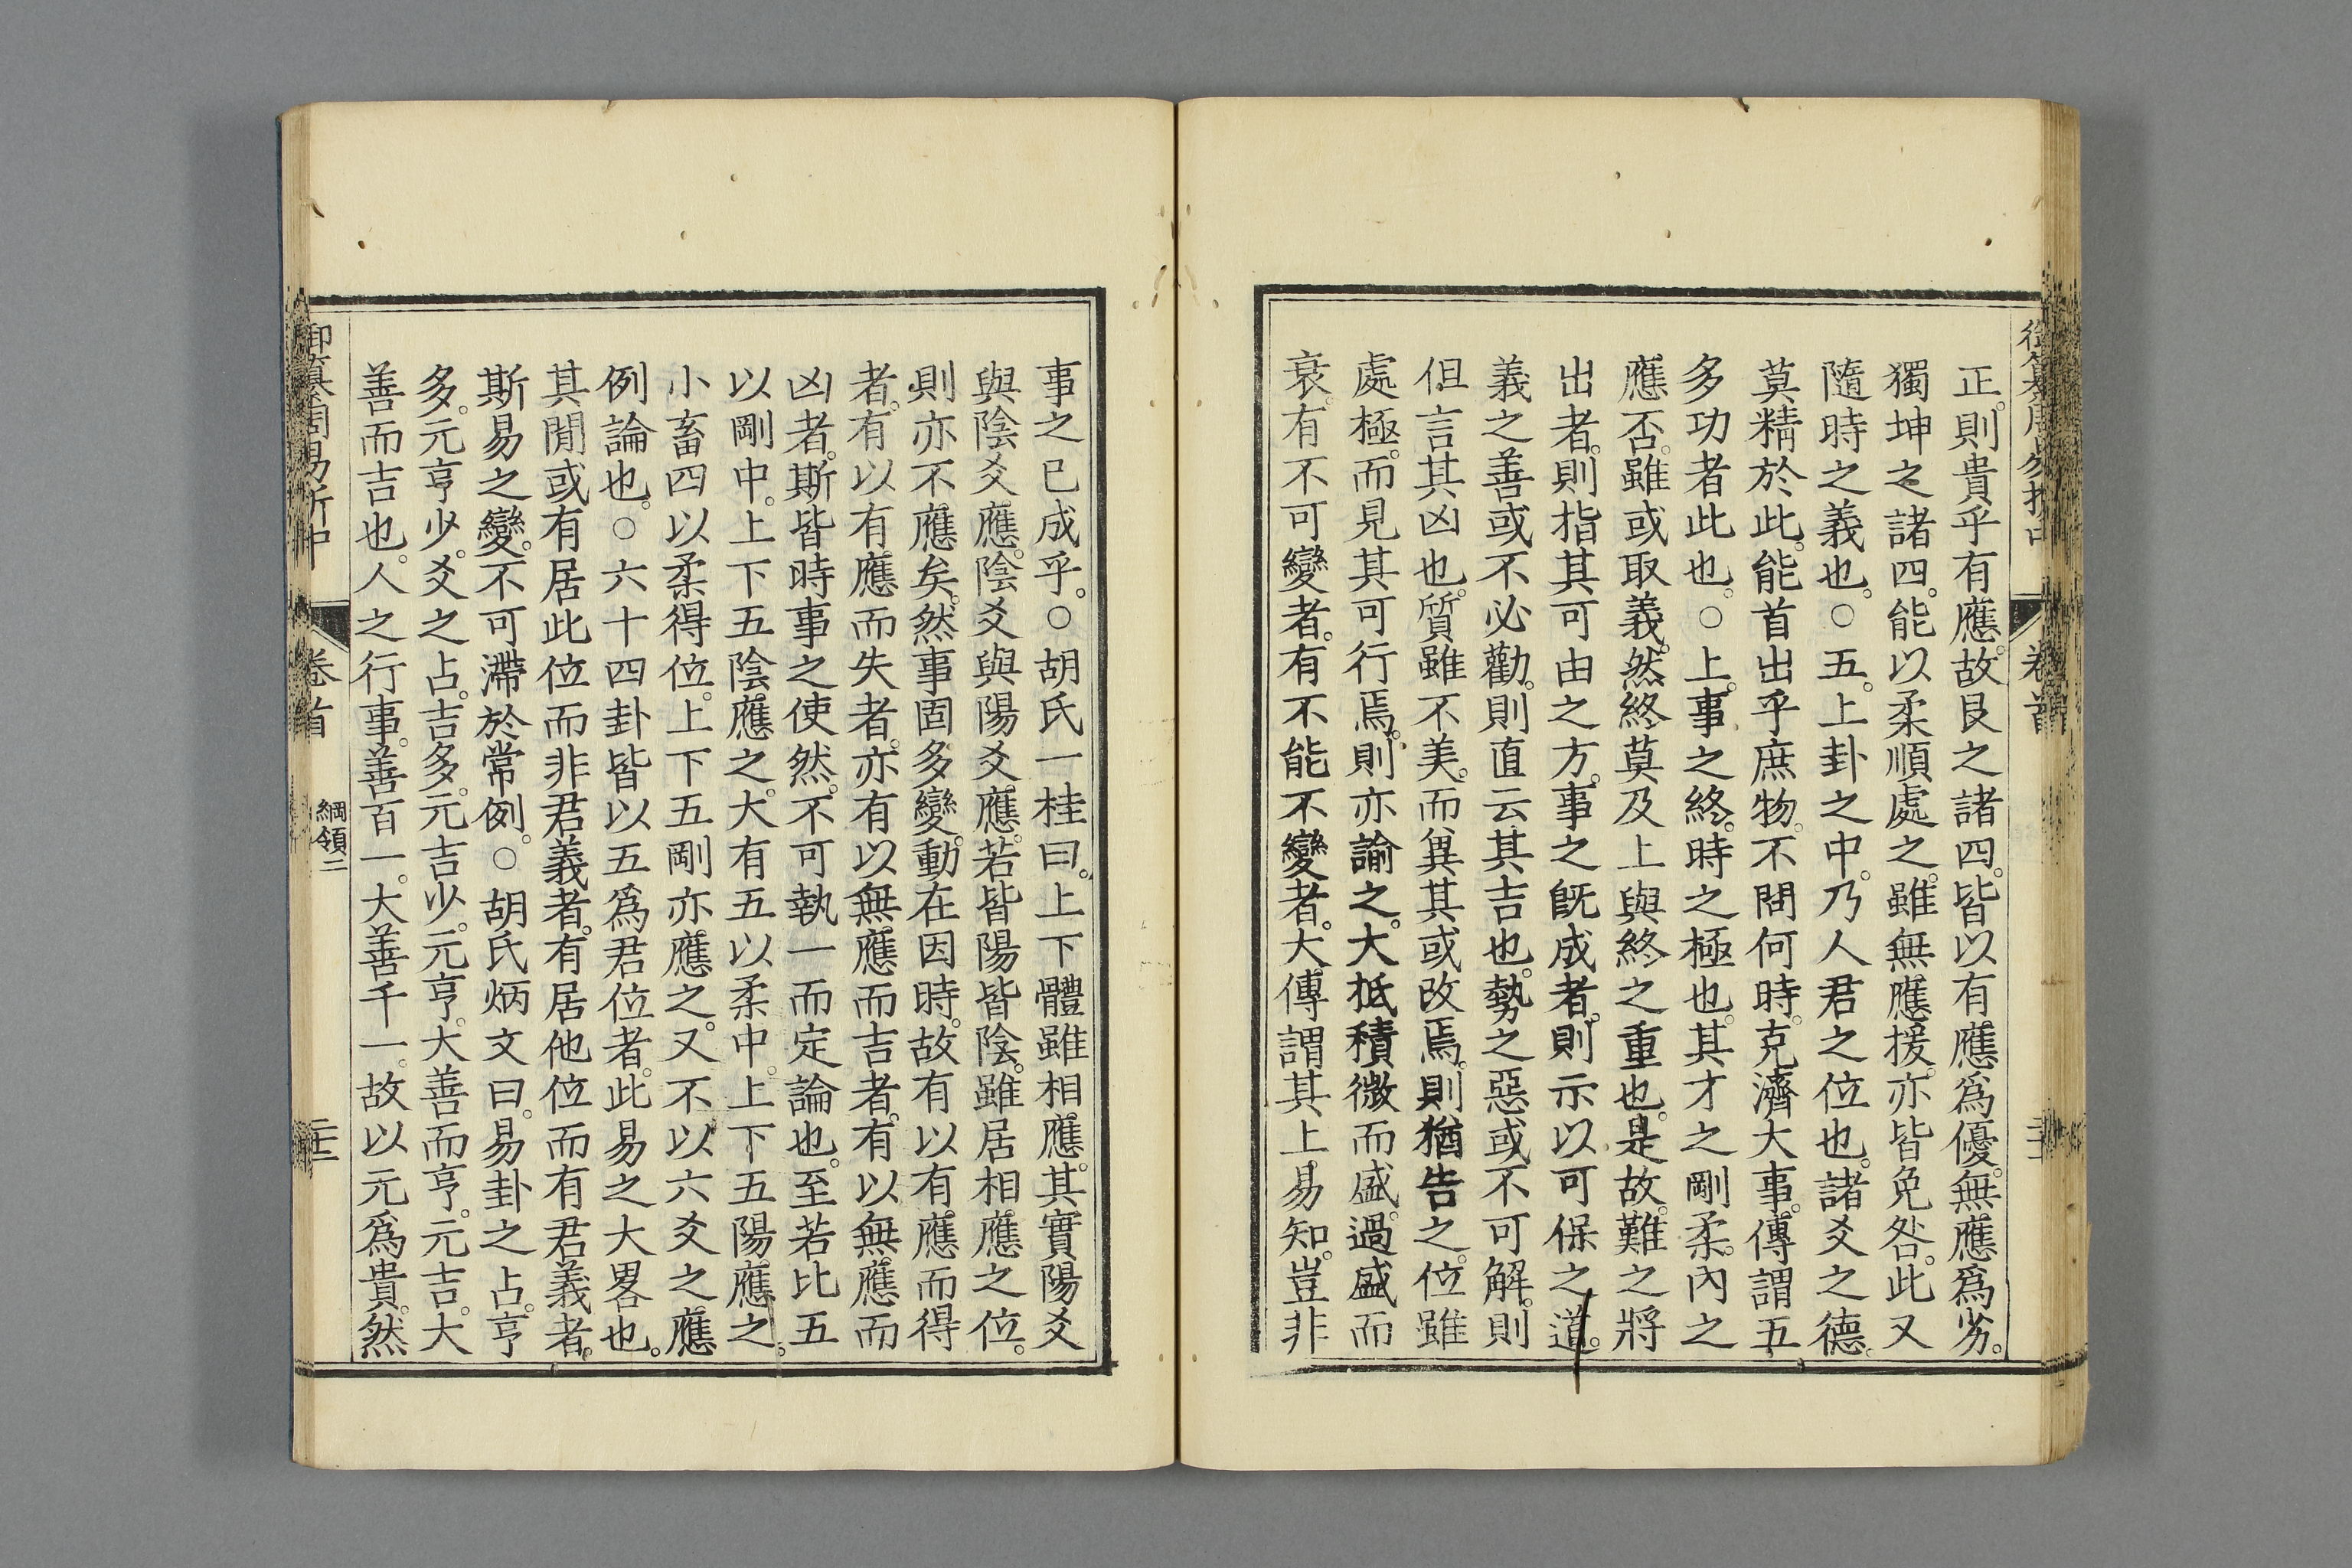 正。則貴乎有應。故艮之諸四。皆以有應爲優。無應爲劣。
獨坤之諸四。能以柔順處之。雖無應援。亦皆免咎。此又
隨時之義也。○五。上卦之中。乃人君之位也。諸爻之德。
莫精於此。能首出乎庶物。不問何時。克濟大事。傳謂五
多功者此也。○上。事之終。時之極也。其才之剛柔。內之
應否。雖或取義。然終莫及上與終之重也。是故。難之將
出者。則指其可由之方。事之旣成者。則示以可保之道。
義之善或不必勸。則直云其吉也。勢之惡或不可解。則
但言其凶也。質雖不美。而冀其或改焉。則猶告之。位雖
處極。而見其可行焉。則亦諭之。大抵積微而盛。過盛而
衰。有不可變者。有不能不變者。大傳謂其上易知。豈非
卷首
事之已成乎。○胡氏一桂曰。上下體雖相應。其實陽爻
與陰爻應。陰爻與陽爻應。若皆陽皆陰。雖居相應之位。
則亦不應矣。然事固多變。動在因時。故有以有應而得
者。有以有應而失者。亦有以無應而吉者。有以無應而
凶者。斯皆時事之使然。不可執一而定論也。至若比五
以剛中。上下五陰應之。大有五以柔中。上下五陽應之。
小畜四以柔得位。上下五剛亦應之。又不以六爻之應
例論也。○六十四卦皆以五爲君位者。此易之大畧也。
其閒或有居此位而非君義者。有居他位而有君義者。
斯易之變。不可滯於常例。○胡氏炳文曰。易卦之占。亨
多。元亨少。爻之占。吉多。元吉少。元亨。大善而亨。元吉。大
善而吉也。人之行事。善百一。大善千一。故以元爲貴。然
御纂周易折中 卷首 綱領二